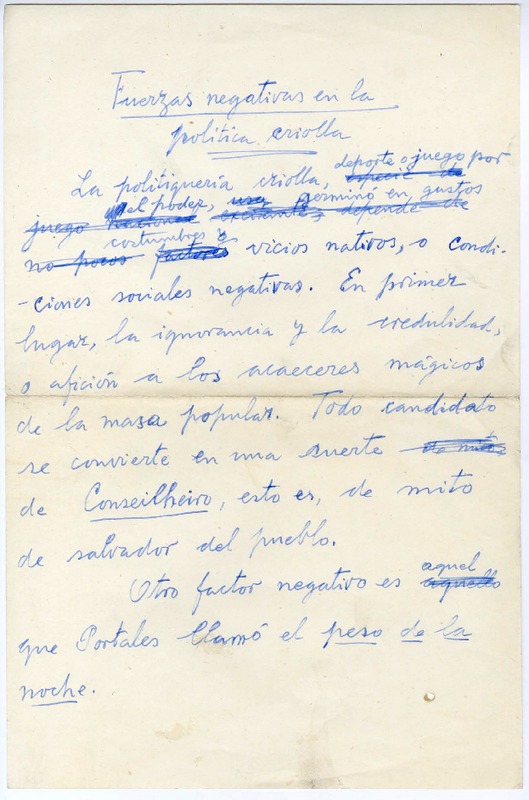 Fuerzas negativas en la
política criolla
La politiquería criolla, deporte o juego por
especie de
del poder, germinó en gustos
juego nacional depende de
costumbres y
no pocos factores vicios nativos, o condi-
-ciones sociales negativas. En primer
lugar, la ignorancia y la credulidad,
o afición a los acaeceres mágicos
de la masa popular. Todo candidato
se convierte en una suerte de mitos
de Conseilheiro, esto es, de mito
de salvador del pueblo.
aquel
Otro factor negativo es aquello
que Portales llamó el peso de la
noche.